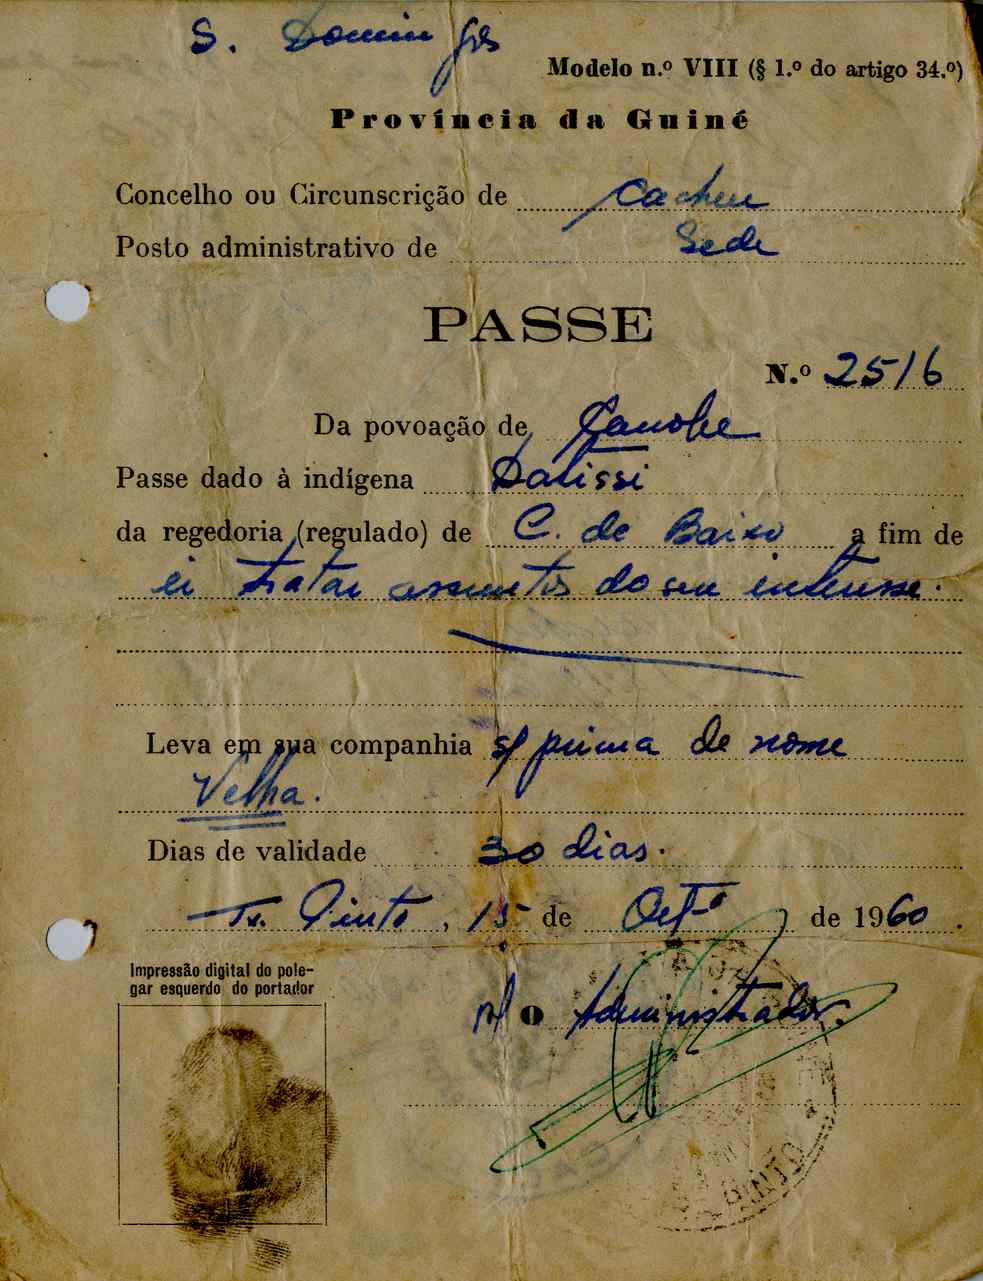 S. Domingos
Modelo n.º VIII (§ 1.º do artigo 34.º)
Província da Guiné
Concelho ou Circunscrição de Cacheu
Posto administrativo de Sede
PASSE
N.º 2516
Da povoação de Canobe
Passe dado à indígena Datissi
da regedoria (regulado) de C. de Baixo a fim de
ir tratar assuntos do seu interesse.
Leva em sua companhia s/ prima de nome
Velha.
Dias de validade 30 dias.
Tx. Pinto, 15 de Outº de 1960.
Impressão digital do pole-
gar esquerdo do portador
O Administrador.
PINTO